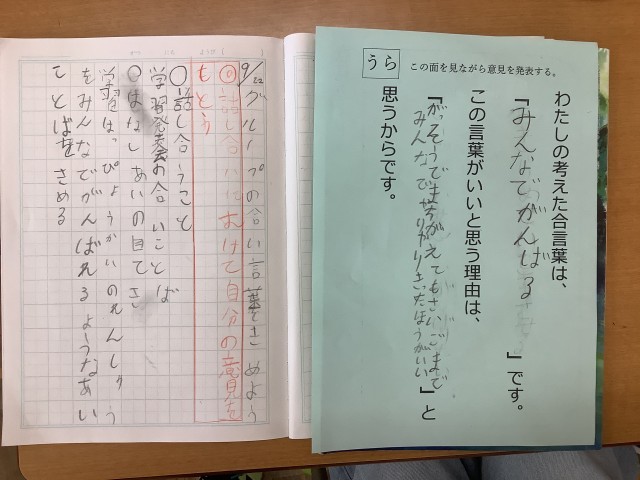 うら
この面を見ながら意見を発表する。
わたしの考えた合言葉は、
『みんなでがんばる』です。
この言葉がいいと思う理由は、
『がっそうでまちがえてもさいごまで
みんなで きいたほうがいい』と
思うからです。
9/22 グループの合い言葉をきめよう
◎話し合いにむけて自分の意見を
もとう
○話し合うこと
学習発表会の合いことば
○はなしあいの目てき
学習はっぴょうかいのれんしゅう
をみんなでがんばれるようなあい
ことばをきめる